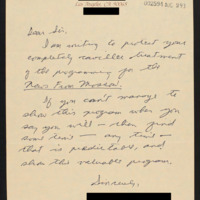 Los Angeles, CA 90064
Dear Sir,
I am writing to protest your
completely cavalier treatment
of the programming for the
News From Moscow.
If you can't manage to
show this program when you
say you will — then find
some time — any time —
that is predictable, and
show the valuable program.
Sincerely,